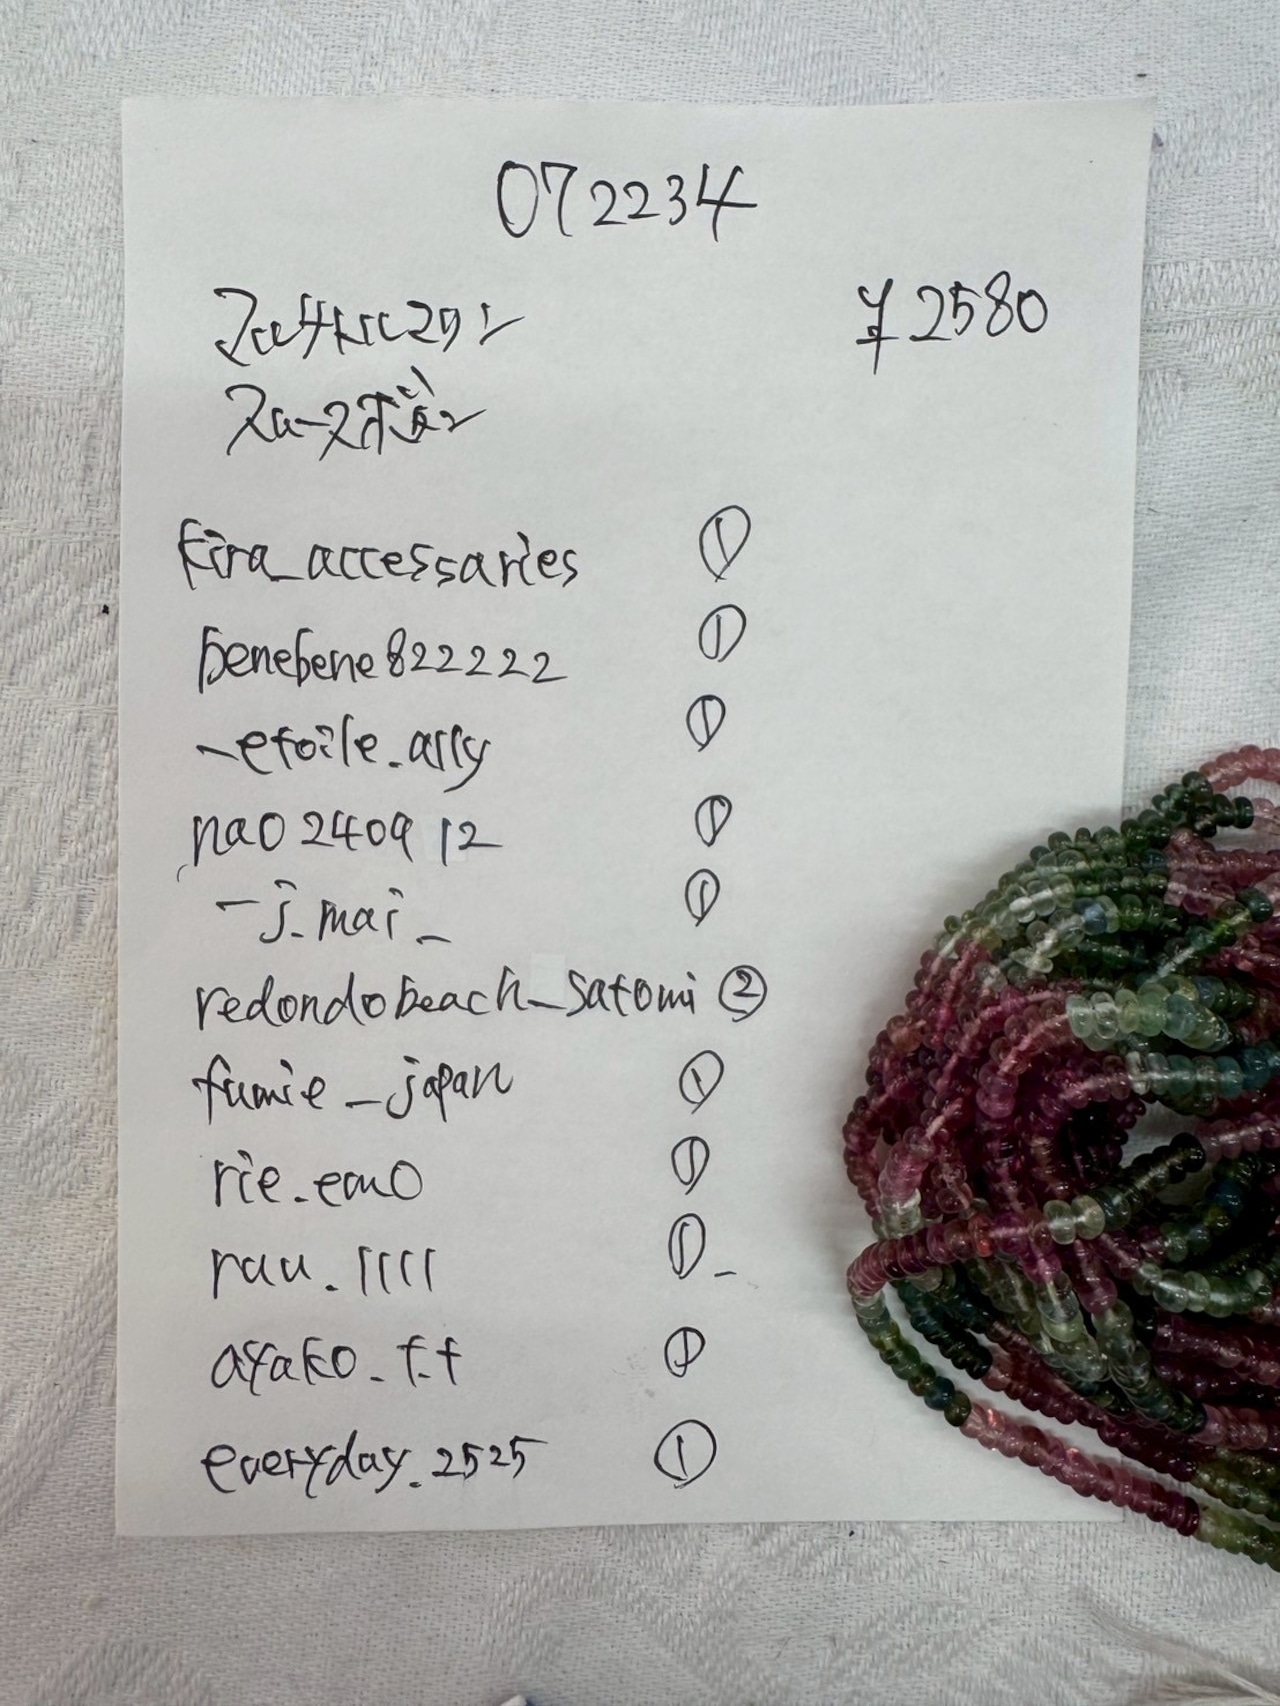 072234
¥2580
kira_accessaries ①
benebene822222 ①
_etoile.ally ①
nao240912 ①
_j.mai_ ①
redondobeach_satomi ②
fumie_japan ①
rie.emo ①
ruu.1111 ①
ayako.t.t ①
everyday.2525 ①